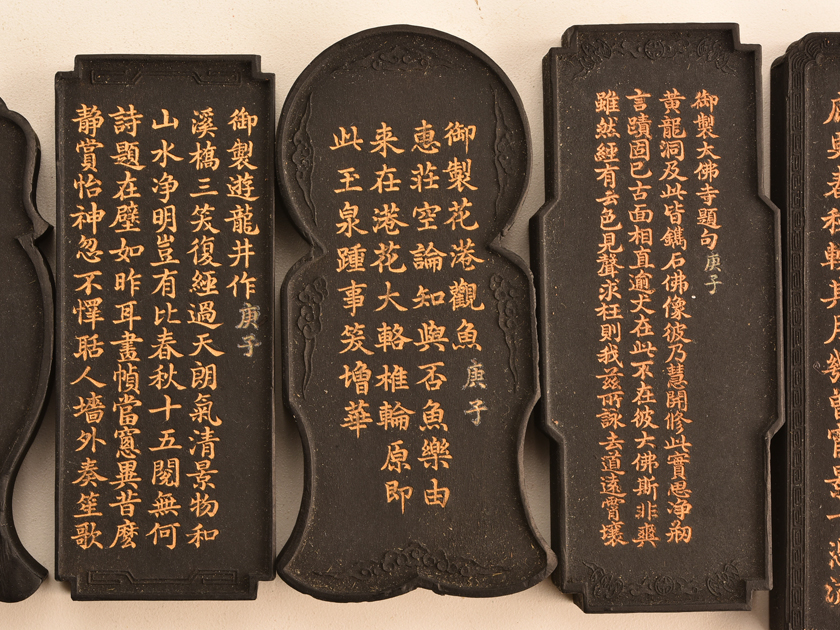 御製大佛寺題句 庚子
黃龍洞及此皆鐫石佛像彼乃慧開修此實思净剏
言蹟固已古面相直逾丈在此不在彼大佛斯非爽
雖然經有云色見聲求枉則我茲所詠去道遠霄壤
御製花港觀魚 庚子
惠莊空論知與否魚樂由
來在港花大輅椎輪原即
此玉泉踵事笑增華
御製遊龍井作 庚子
溪橋三笑復經過天朗氣清景物和
山水净明豈有比春秋十五閱無何
詩題在壁如昨耳畫幀當窻異昔麼
靜賞怡神忽不懌聒人墻外奏笙歌